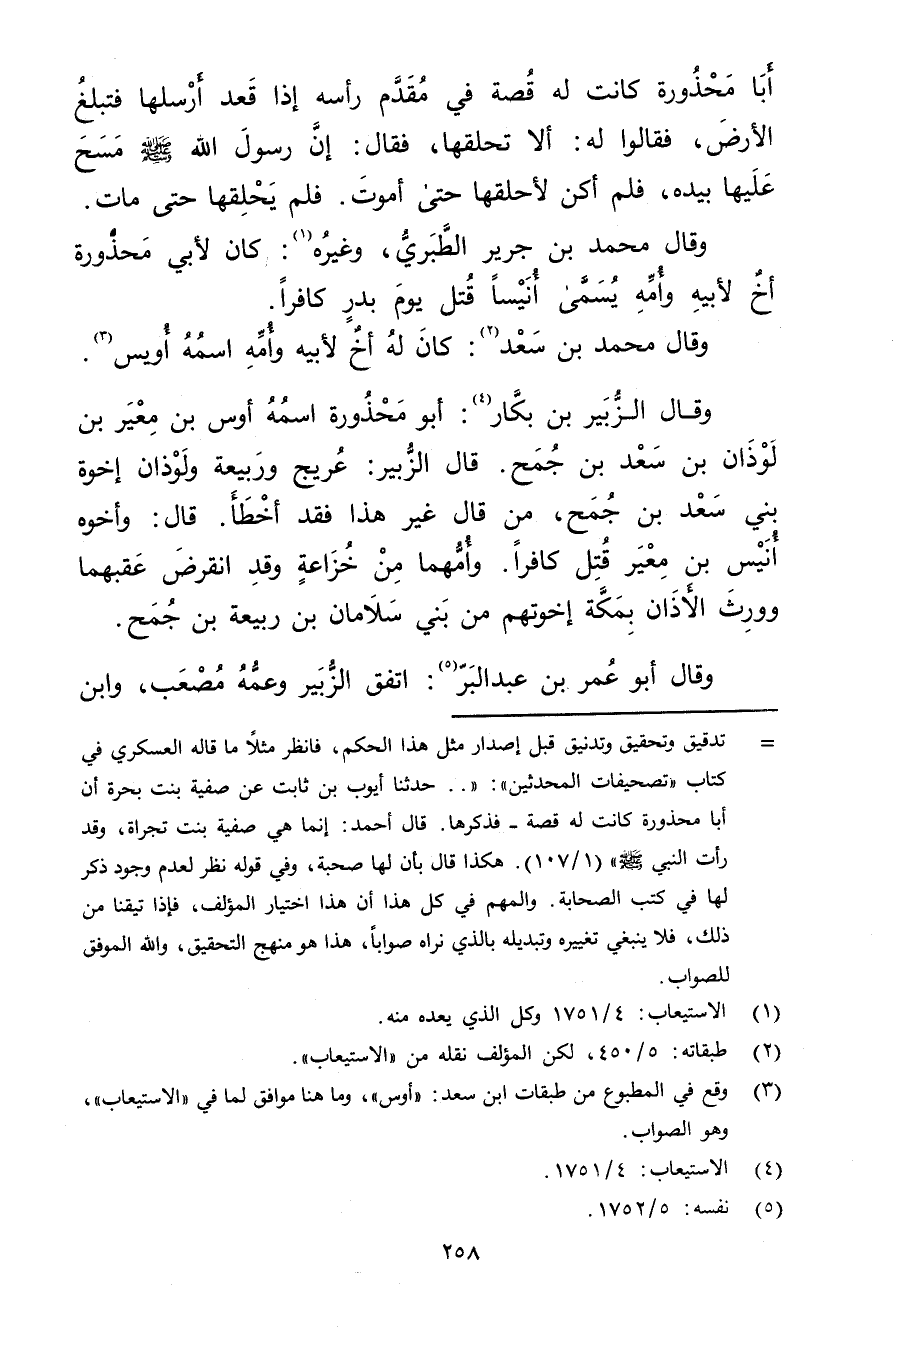 أَبَا مَحْذُورة كانت له قُصة في مُقَدَّم رأسه إذا قَعد أَرْسلها فتبلغُ
الأرضَ، فقالوا له: ألا تحلقها، فقال: إنَّ رسولَ الله ﷺ مَسَحَ
عَلَيها بيده، فلم أكن لأحلقها حتىٰ أموتَ. فلم يَحْلِقها حتى مات.
وقال محمد بن جرير الطَّبَريُّ، وغيرُه(١): كان لأبي مَحذُورة
أخٌ لأبيهِ وأُمِّهِ يُسَمَّىٰ أُنَيْساً قُتل يومَ بدرٍ كافراً.
وقال محمد بن سَعْد(٢): كانَ لهُ أخٌ لأبيه وأُمِّهِ اسمُهُ أُويس(٣).
وقـال الـزُّبَير بن بكَّار(٤): أبو مَحْذُورة اسمُهُ أوس بن مِعْيَر بن
لَوْذَان بن سَعْد بن جُمَح. قال الزُّبير: عُريج ورَبيعة ولَوْذان إخوة
بني سَعْد بن جُمَح، من قال غير هذا فقد أخْطَأَ. قال: وأخوه
أُنَيْس بن مِعْيَر قُتِل كافراً. وأُمُّهما مِنْ خُزَاعةٍ وقدِ انقرضَ عَقبهما
وورِثَ الأَذَان بِمَكَّة إخوتهم من بَني سَلَامان بن ربيعة بن جُمَح.
وقال أبو عُمر بن عبدالبَرّ(٥): اتفق الزُّبَير وعمُّهُ مُصْعَب، وابن
= تدقيق وتحقيق وتدنيق قبل إصدار مثل هذا الحكم، فانظر مثلاً ما قاله العسكري في
كتاب «تصحيفات المحدثين»: «.. حدثنا أيوب بن ثابت عن صفية بنت بحرة أن
أبا محذورة كانت له قصة ـ فذكرها. قال أحمد: إنما هي صفية بنت تجراة، وقد
رأت النبي ﷺ» (١٠٧/١). هكذا قال بأن لها صحبة، وفي قوله نظر لعدم وجود ذكر
لها في كتب الصحابة. والمهم في كل هذا أن هذا اختيار المؤلف، فإذا تيقنا من
ذلك، فلا ينبغي تغييره وتبديله بالذي نراه صواباً، هذا هو منهج التحقيق، والله الموفق
للصواب.
(١) الاستيعاب: ١٧٥١/٤ وكل الذي يعده منه.
(٢) طبقاته: ٤٥٠/٥، لكن المؤلف نقله من «الاستيعاب».
(٣) وقع في المطبوع من طبقات ابن سعد: «أوس»، وما هنا موافق لما في «الاستيعاب»،
وهو الصواب.
(٤) الاستيعاب: ١٧٥١/٤.
(٥) نفسه: ١٧٥٢/٥.
٢٥٨